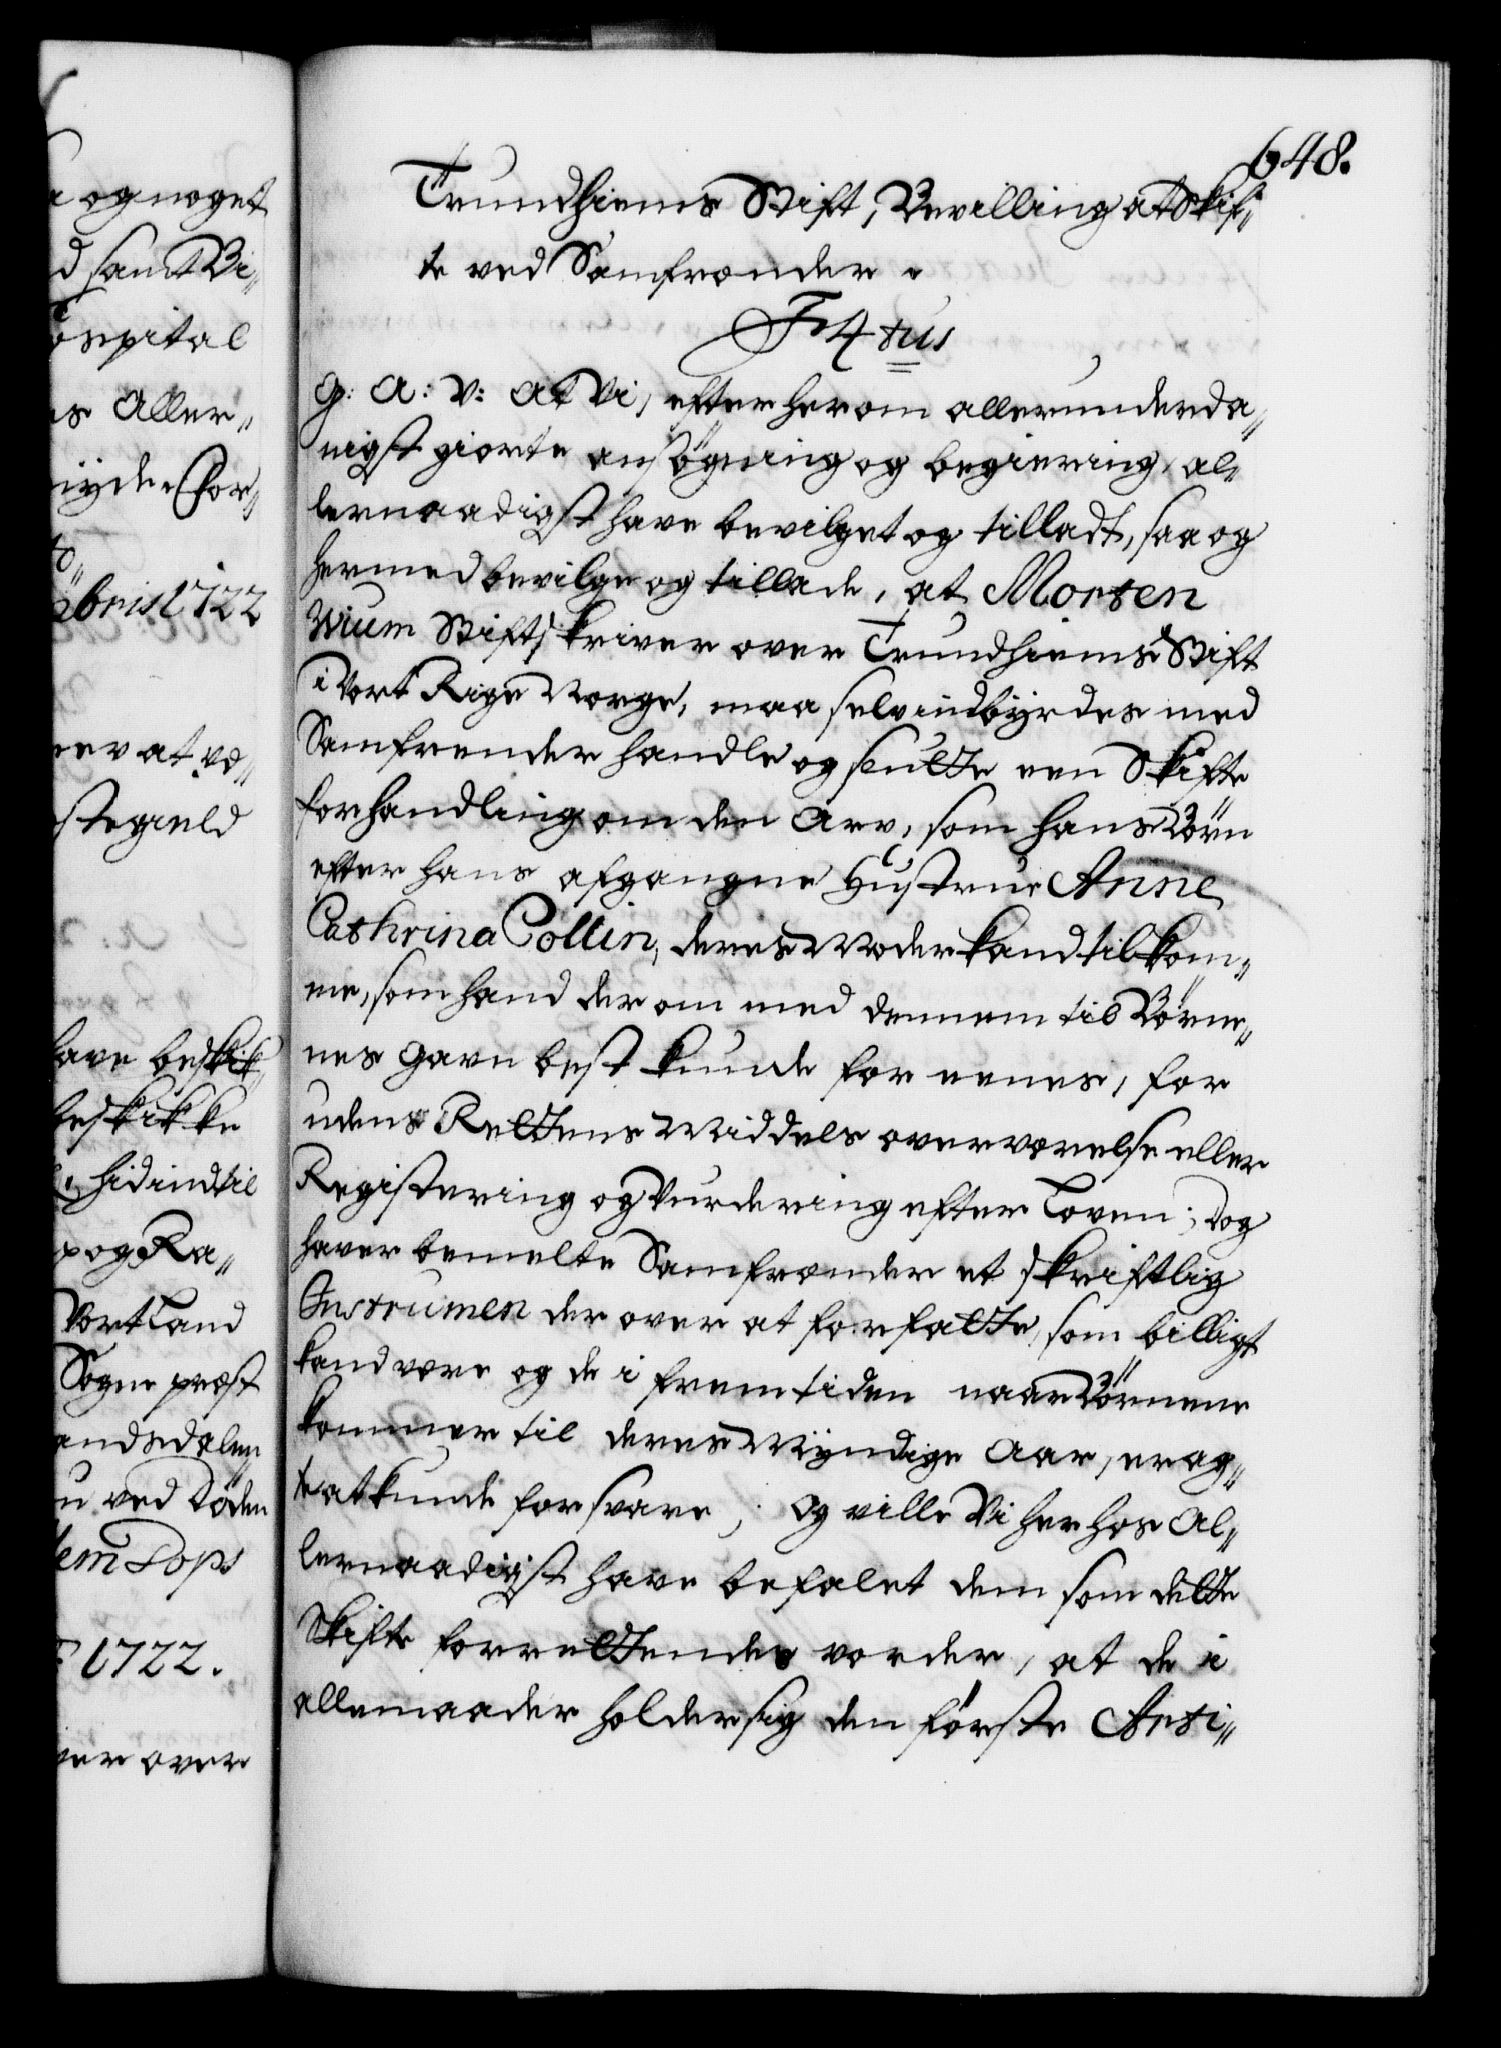 648.
Trundhiems Stift, Bevilling at Skif„
te ved Samfrænder.
F 4tus
G: A: V: At Vi, efter herom allerunderda„
nigst giorte ansøgning og begiering, al„
lernaadigst have bevilget og tilladt, saa og
hermed bevilge og tillade, at Morten
Wium Stiftskriver over Trundhiems Stift
i Vort Rige Norge, maa selv indbyrdes med
Samfrender handle og slutte een Skifte
forhandling om den Arv, som hans Børn
efter hans afgangne Hustrue Anne
Cathrina Collin, deres Moder kand tilkom„
me, som hand der om med dennem til Børne„
nes gavn best kunde foreenes, for
uden Rettens Middels overværelse eller
Registering og Vurdering efter Loven; Dog
haver bemelte Samfrænder et skriftlig
Instrumen der over at forfatte, som billigt
kand være og de i fremtiden naar Børnene
kommer til deres Myndige Aar, erag„
te at kunde forsvare; Og ville Vi herhos Al„
lernaadigst have befalet dem som dette
Skifte forrettendes vorder, at de i
allemaader holder sig den første Arti„
og noget
d samt Bi„
ospital
s Aller„
nyde. Cor„
to„
bris 1722
ver at væ„
steguld
have beskik„
beskikke
hidindtil
p og Ra„
Vort Land
Sogne præst
andsdalen
u ved Døden
1722.
ver over